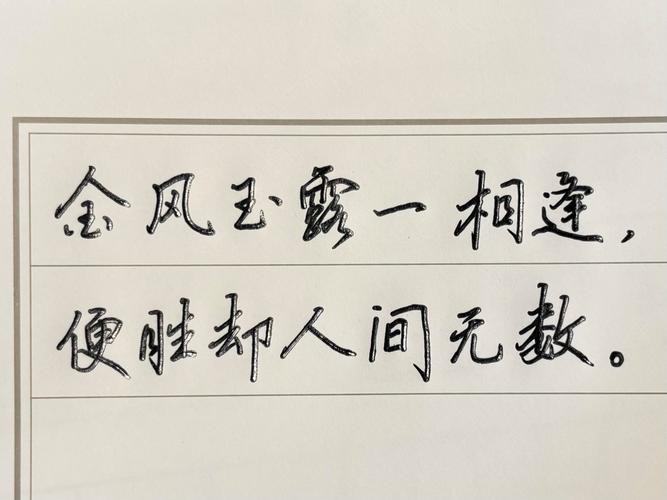 金风玉露一相逢，
便胜却人间无数。